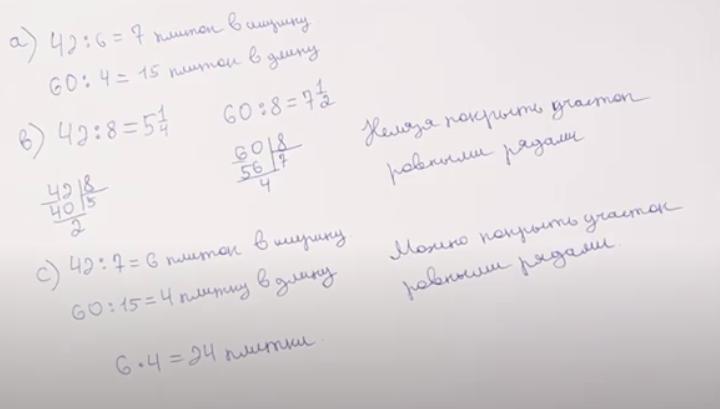 а) 42 : 6 = 7 плиток в ширину
60 : 4 = 15 плиток в длину
в) 42 : 8 = 5 1/4
60 : 8 = 7 1/2
42 | 8
40 | 5
2
60 | 8
56 | 7
4
Нельзя покрыть участок
ровными рядами
с) 42 : 7 = 6 плиток в ширину
60 : 15 = 4 плитку в длину
Можно покрыть участок
ровными рядами.
6 · 4 = 24 плитки.